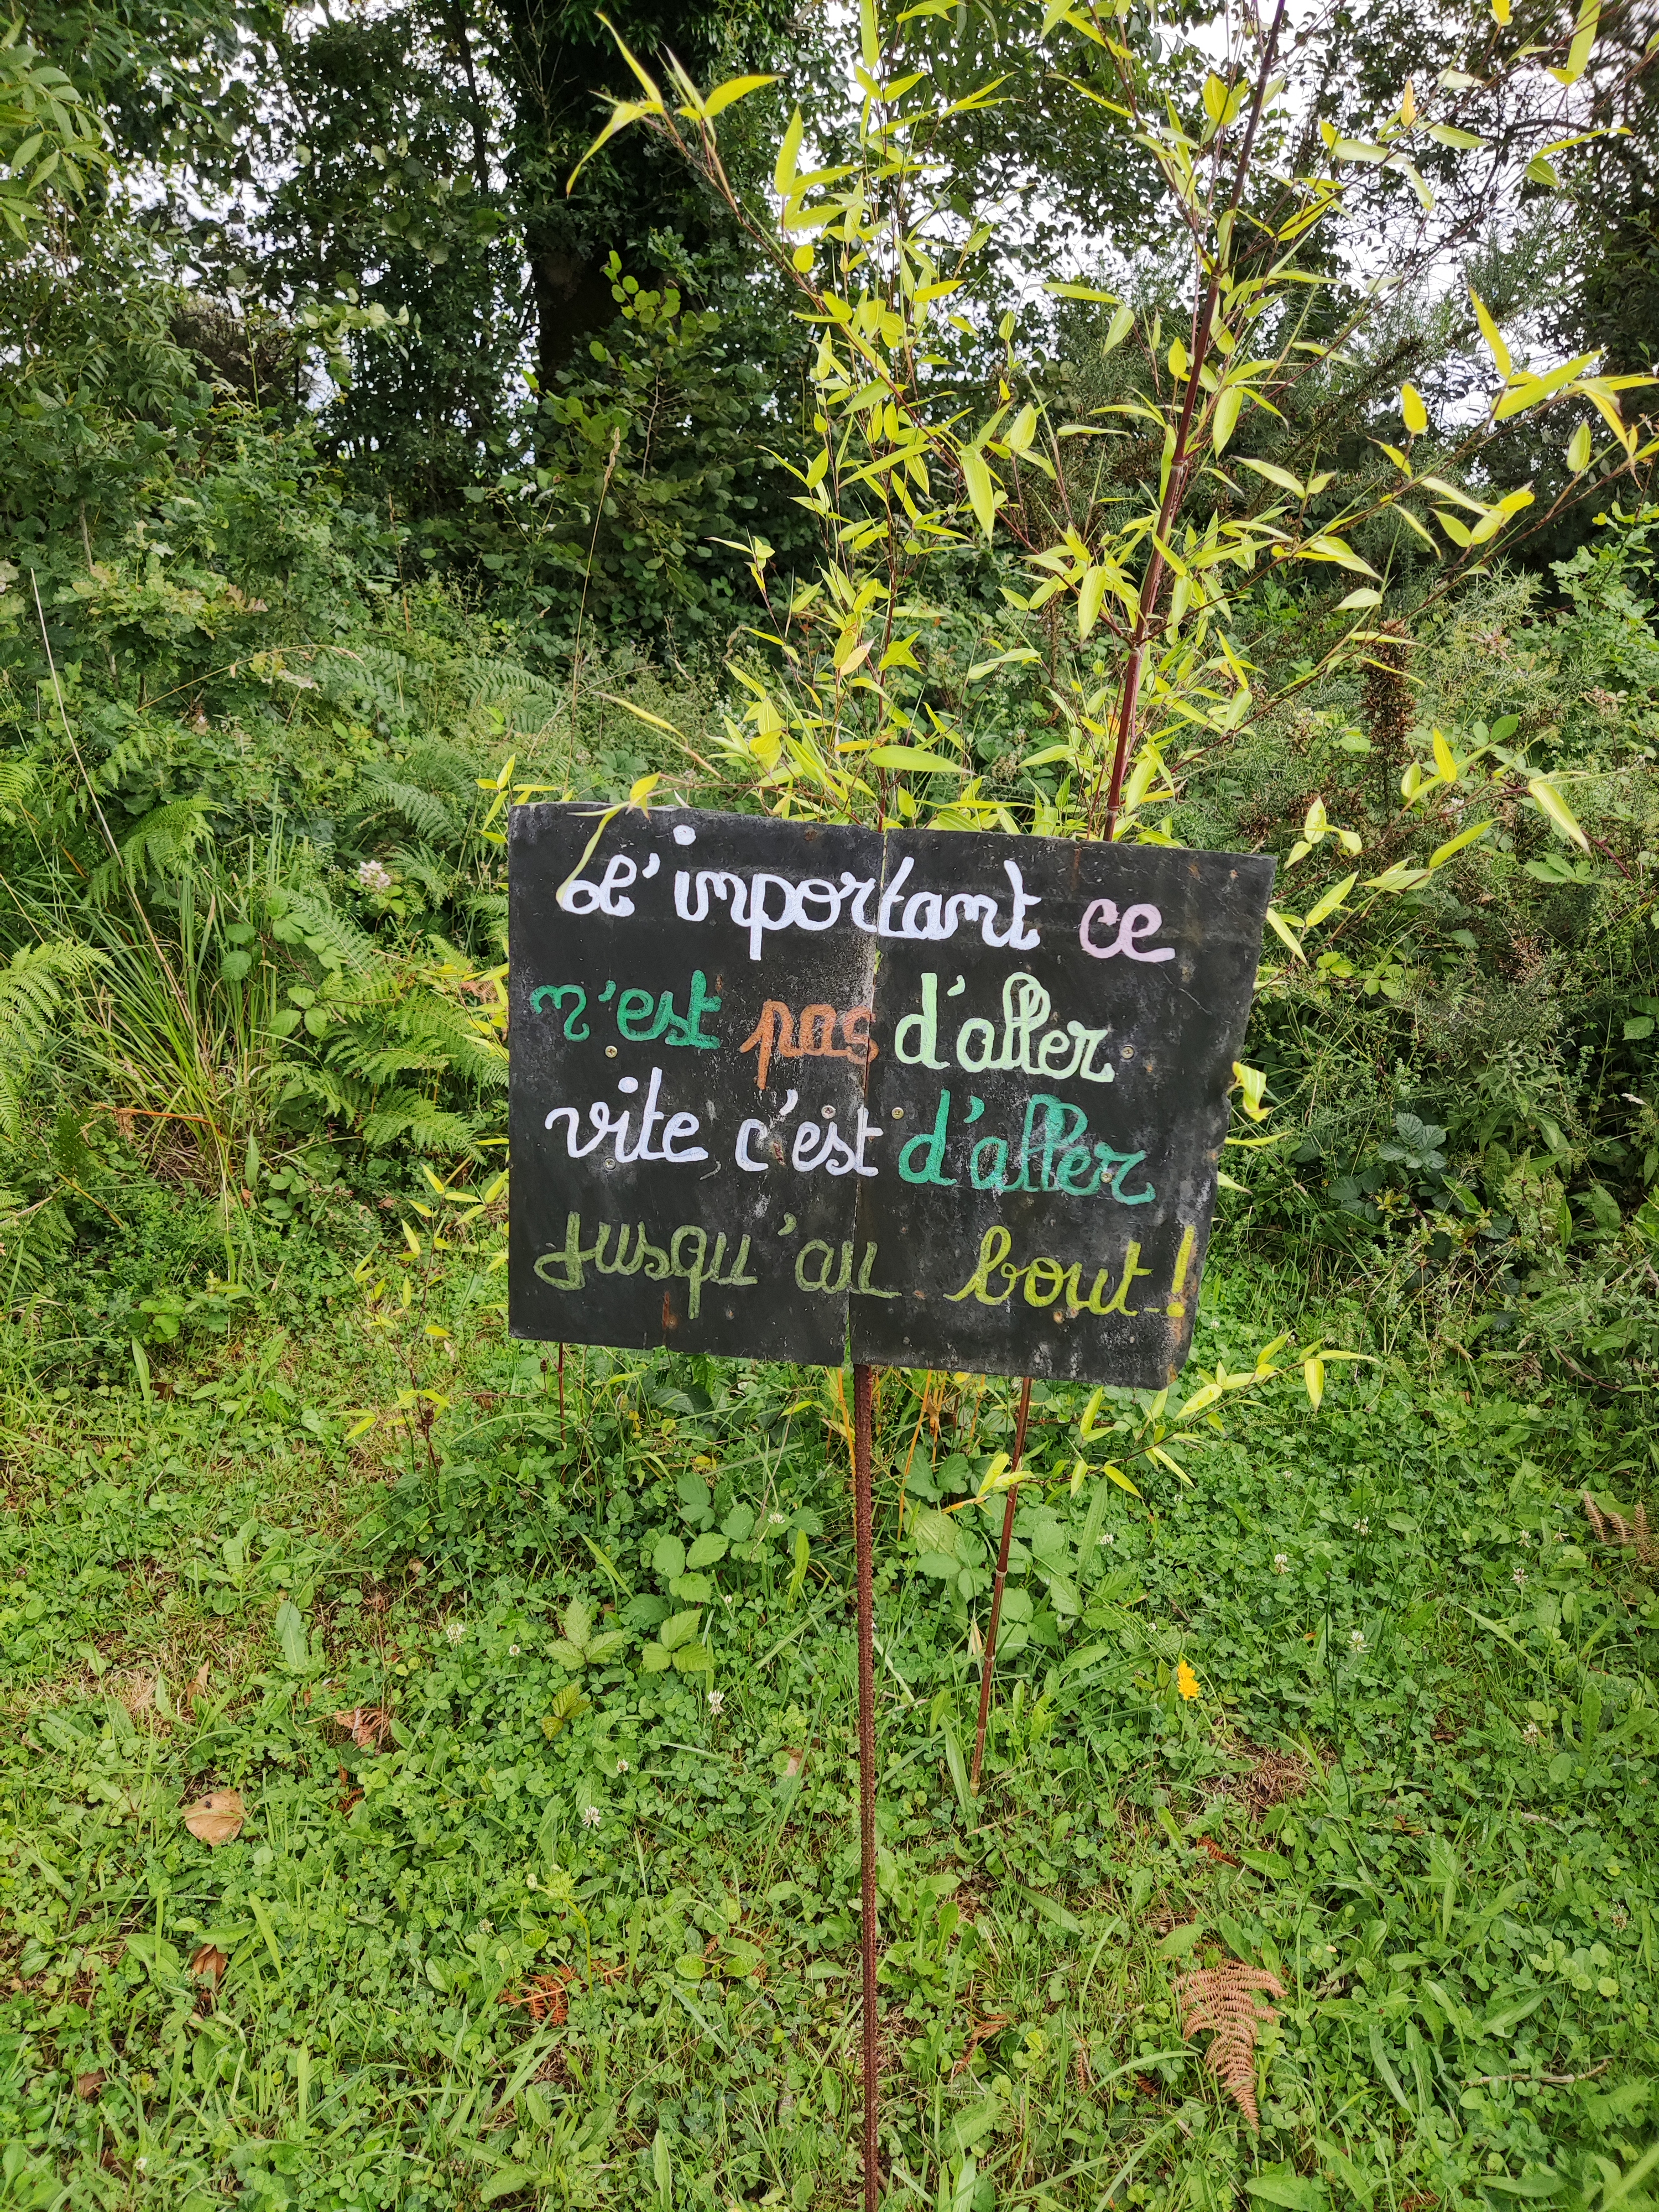 L'important ce
n'est pas d'aller
vite c'est d'aller
jusqu'au bout!